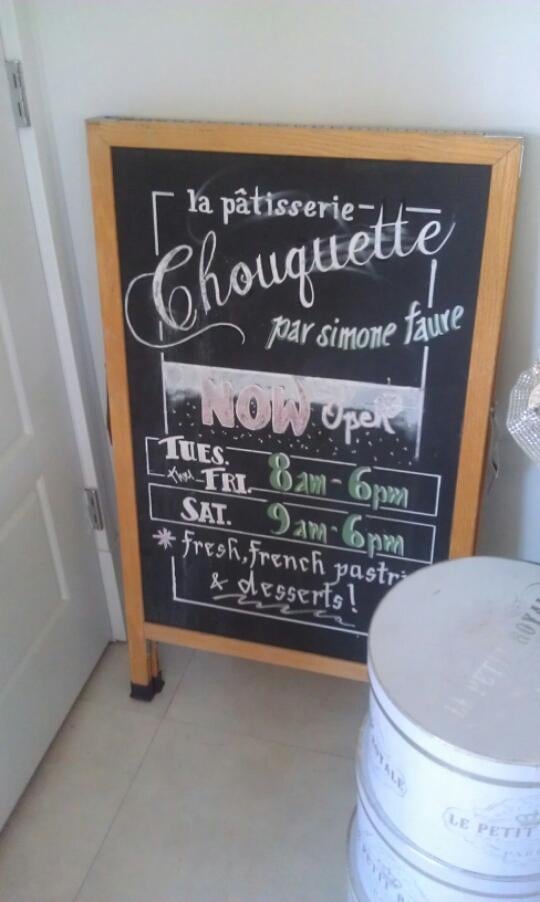 la pâtisserie
Chouquette
par simone faure
NOW Open
TUES. thru FRI. 8am-6pm
SAT. 9am-6pm
* fresh, french pastri
& desserts!
LE PETIT ROYALE
ROYALE
LE PETIT
PETIT